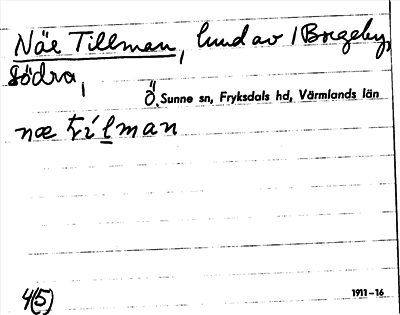 Näe Tillman, lund av 1 Borgeby,
Södra,
Ö. Sunne sn, Fryksdals hd, Värmlands län
næ tilman
4(5)
1911-16